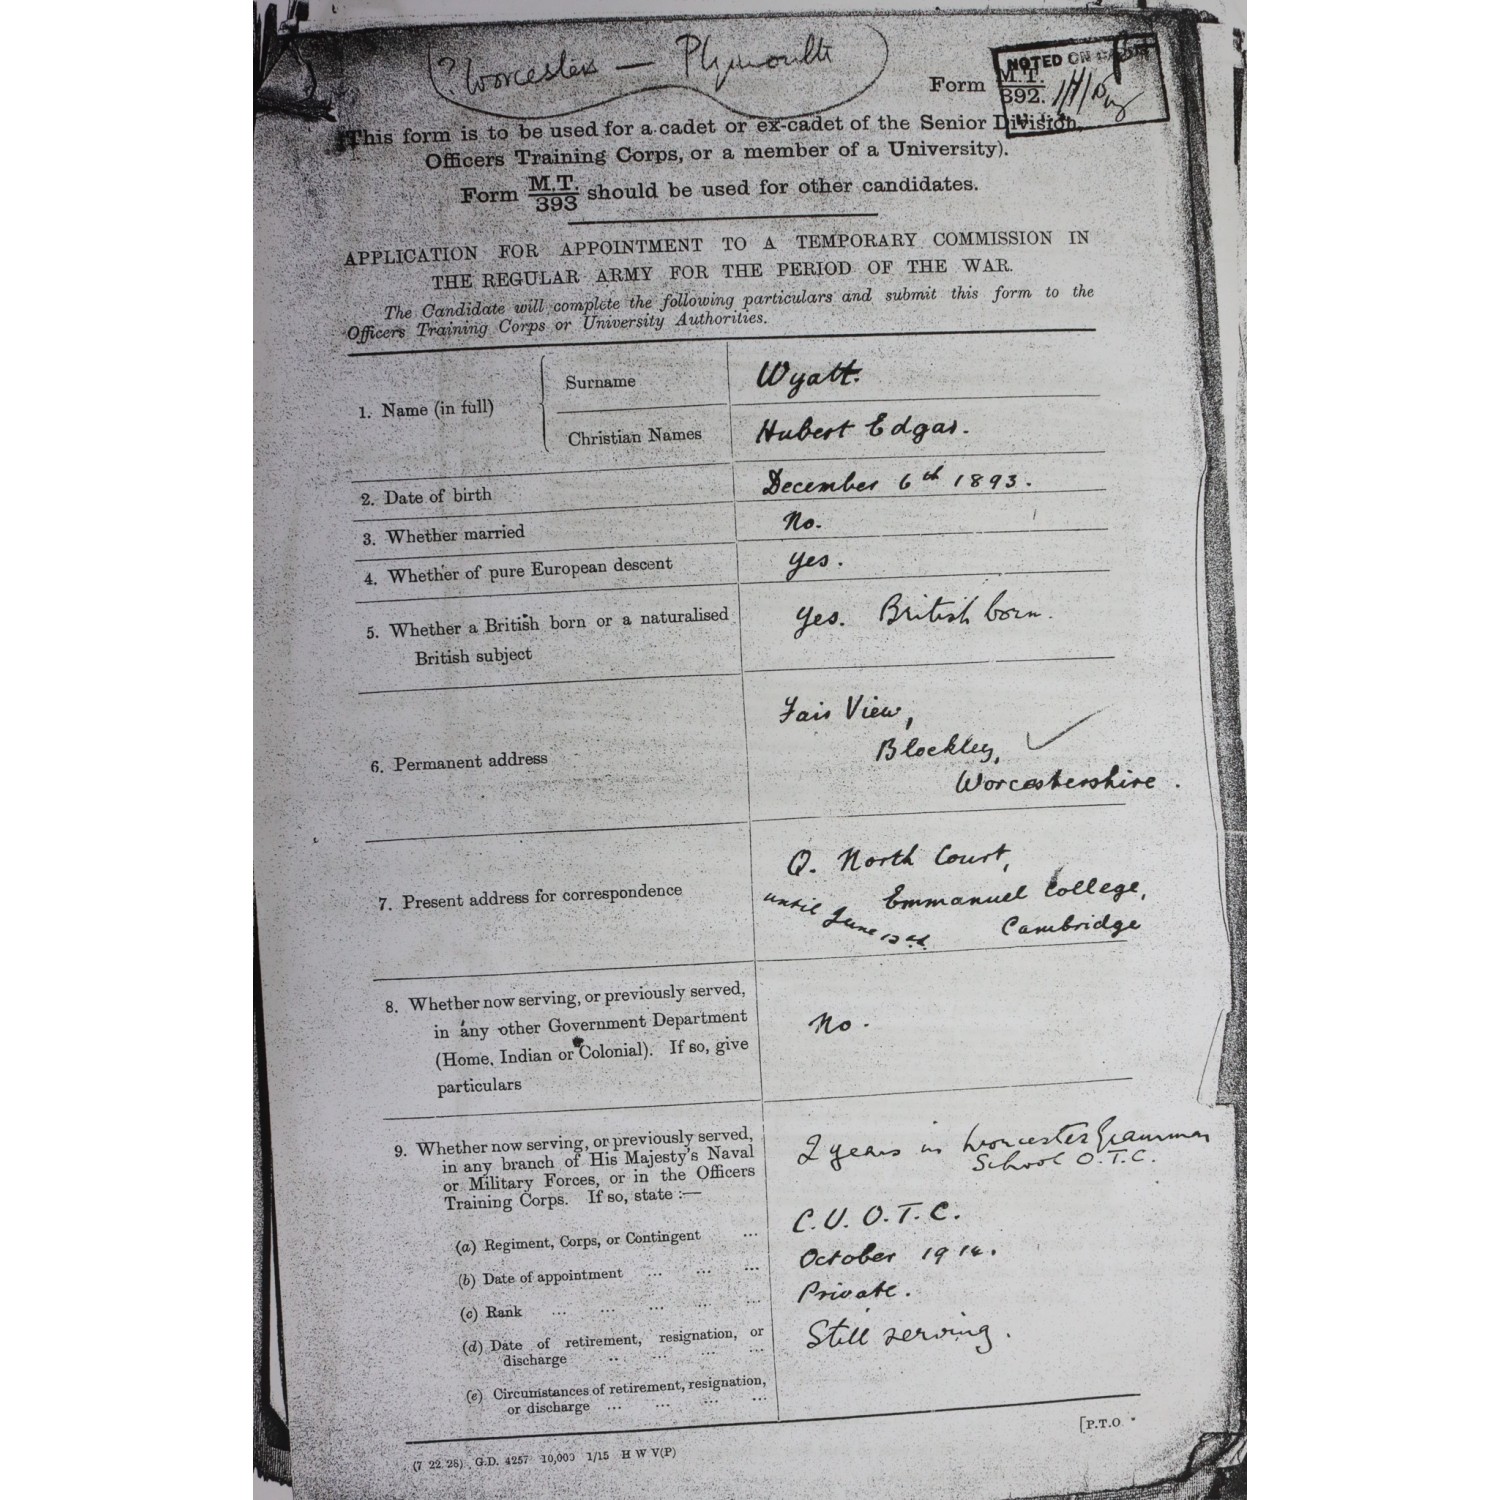 ? Worcesters — Plymouth
NOTED ON
Form M.T. 392.
(This form is to be used for a cadet or ex-cadet of the Senior Division,
Officers Training Corps, or a member of a University).
Form M.T. 393 should be used for other candidates.
APPLICATION FOR APPOINTMENT TO A TEMPORARY COMMISSION IN
THE REGULAR ARMY FOR THE PERIOD OF THE WAR.
The Candidate will complete the following particulars and submit this form to the
Officers Training Corps or University Authorities.
1. Name (in full)
Surname
Wyatt.
Christian Names
Hubert Edgar.
2. Date of birth
December 6th 1893.
3. Whether married
No.
4. Whether of pure European descent
Yes.
5. Whether a British born or a naturalised
British subject
Yes. British born.
6. Permanent address
Fair View,
Blockley,
Worcestershire.
7. Present address for correspondence
Q. North Court,
Emmanuel College,
Cambridge
until June
8. Whether now serving, or previously served,
in any other Government Department
(Home, Indian or Colonial). If so, give
particulars
No.
9. Whether now serving, or previously served,
in any branch of His Majesty's Naval
or Military Forces, or in the Officers
Training Corps. If so, state :—
2 years in Worcester Grammar
School O.T.C.
(a) Regiment, Corps, or Contingent ...
C.U.O.T.C.
(b) Date of appointment ... ... ...
October 1914.
(c) Rank ... ... ... ... ...
Private.
(d) Date of retirement, resignation, or
discharge .. ... ... ...
Still serving.
(e) Circumstances of retirement, resignation,
or discharge ... ... ... ...
[P.T.O
(7 22 28) G.D. 4257 10,000 1/15 H W V(P)